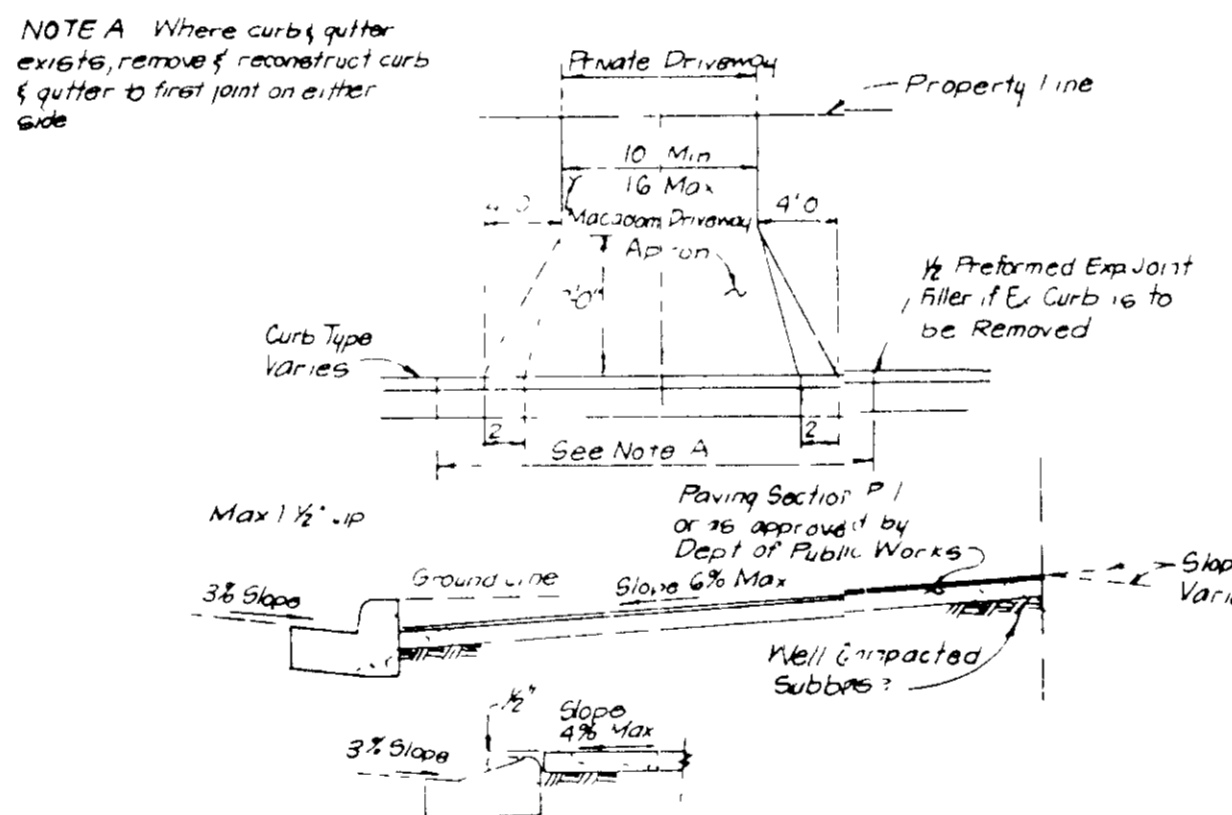 NOTE A Where curb & gutter
exists, remove & reconstruct curb
& gutter to first joint on either
side
Private Driveway
Property Line
10 Min
16 Max
4'0
Macadam Driveway
Apron
1/2 Preformed Exp Joint
Filler if Ex Curb is to
be Removed
Curb Type
Varies
2
2
See Note A
Max 1 1/2"
Paving Section P 1
or as approved by
Dept of Public Works
3% Slope
Ground Line
Slope 6% Max
Slop
Vari
Well Compacted
1/2"
Slope
4% Max
3% Slope